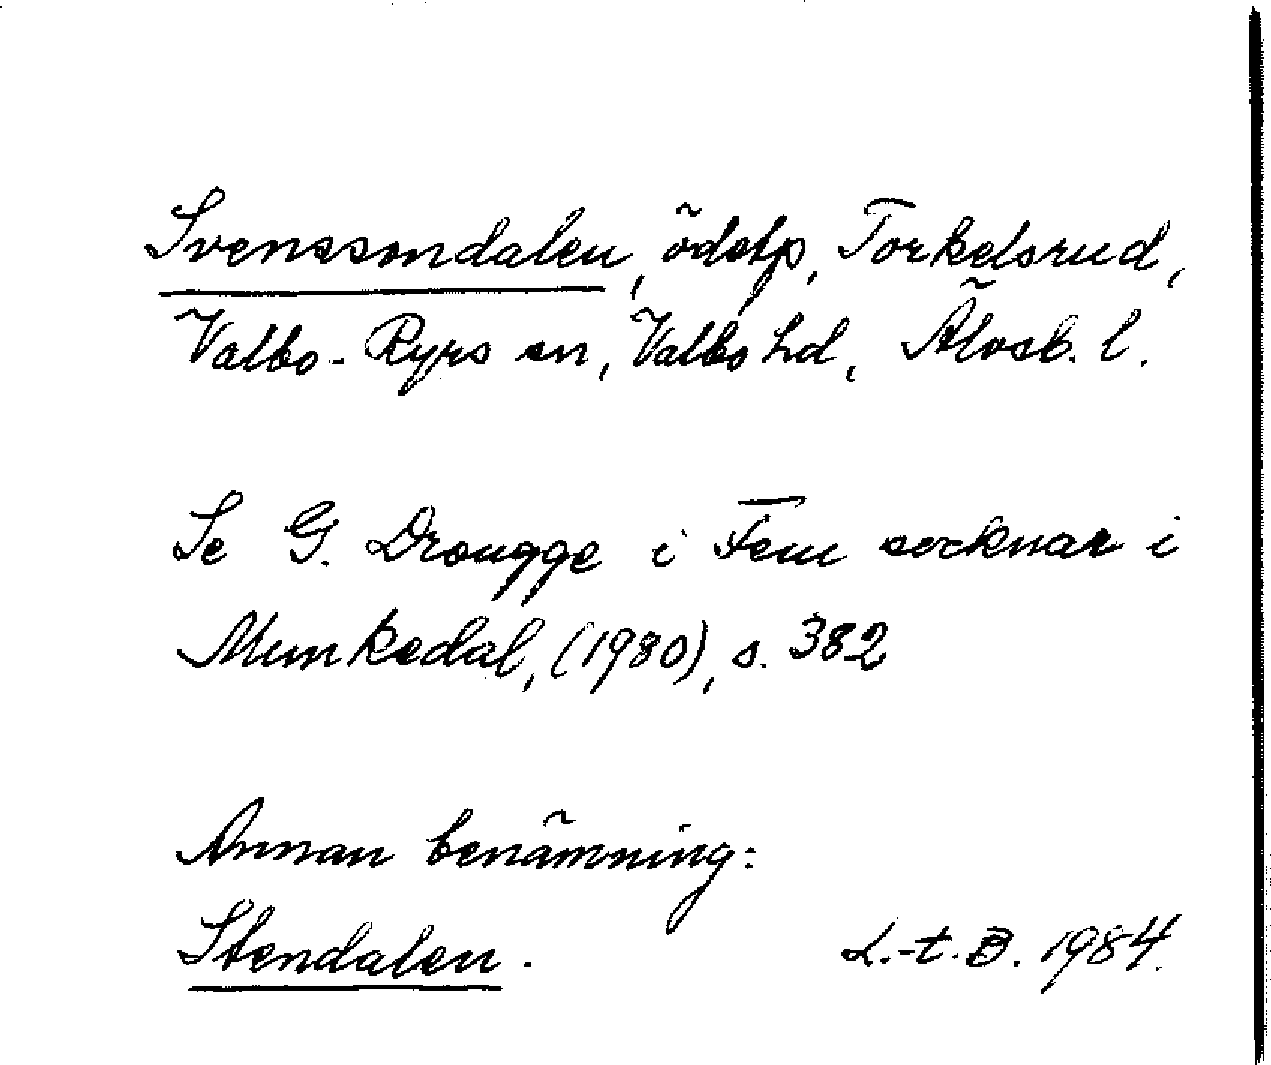 Svenssondalen, ödetp, Torkelsrud,
Valbo-Ryrs sn, Valbo hd, Älvsb. l.
Se G. Drougge i Fem socknar i
Munkedal, (1980), s. 382
Annan benämning:
Stendalen.
L.-t. B. 1984.